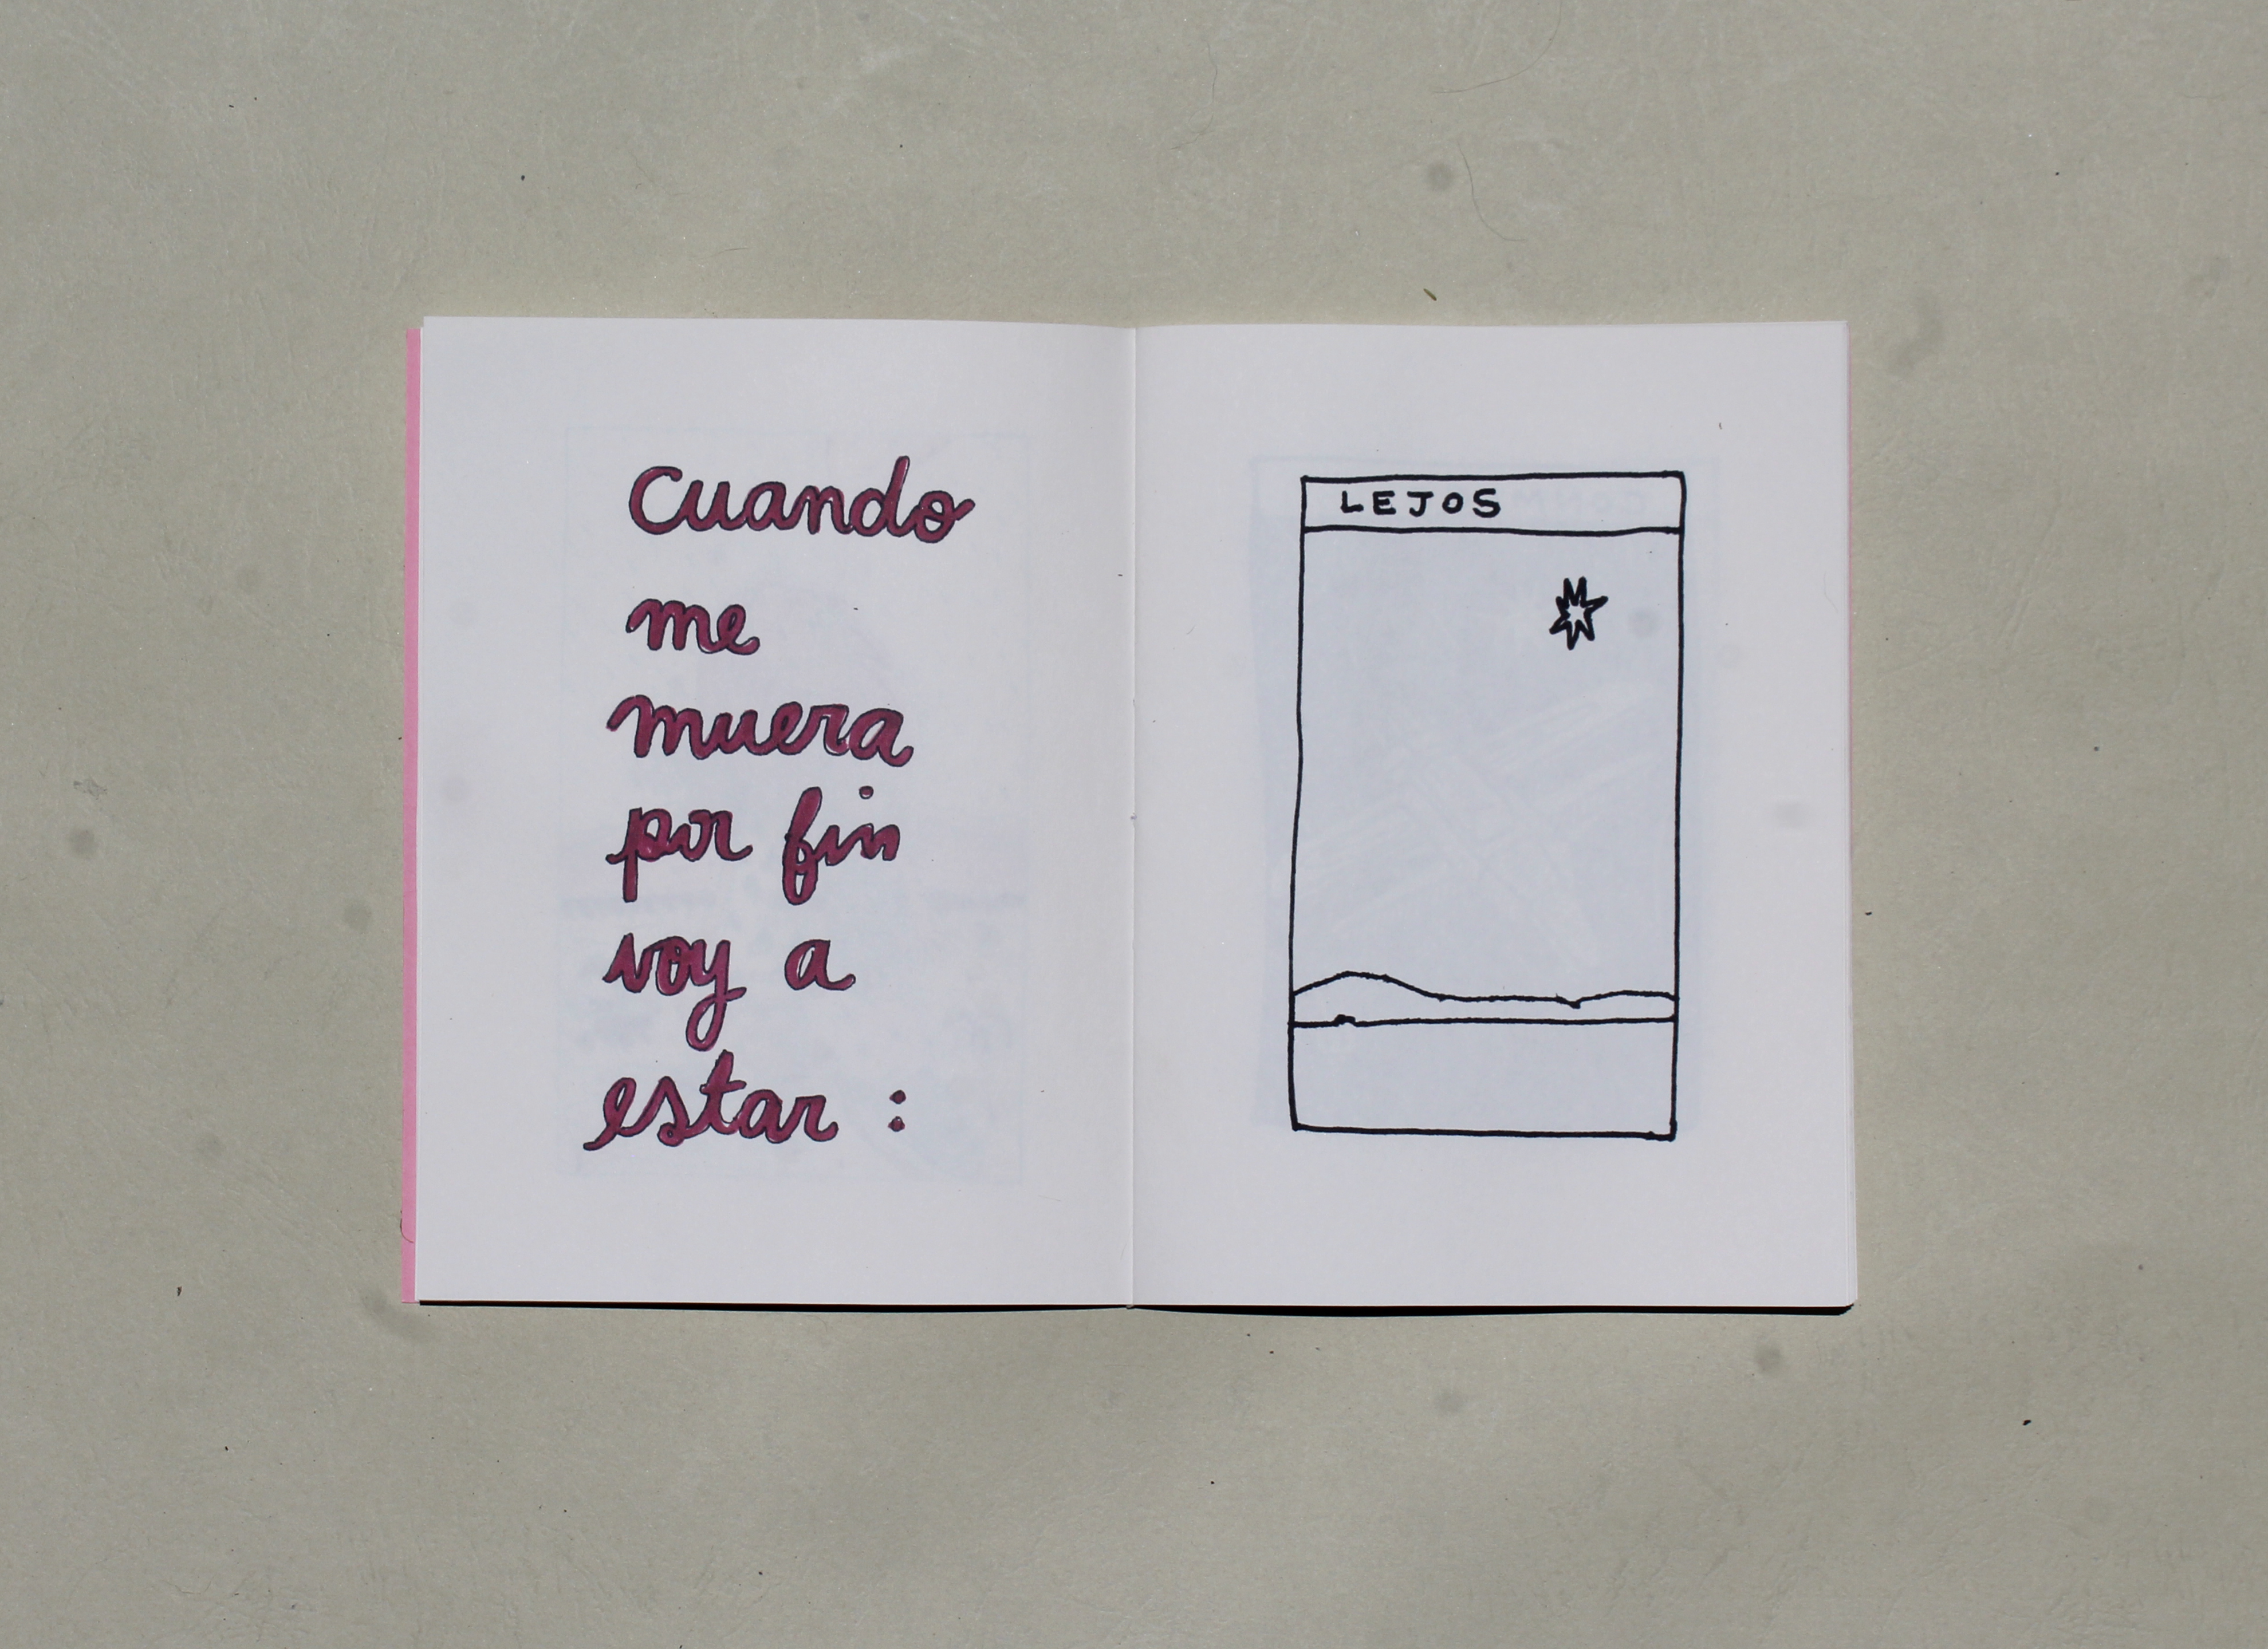 Cuando
me
muera
por fin
voy a
estar :
LEJOS